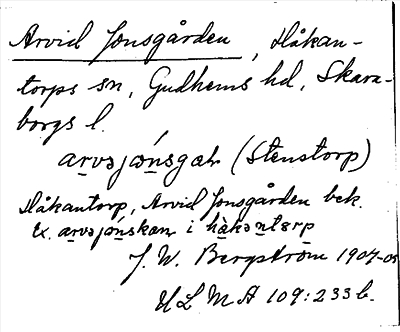 Arvid Jonsgården, Håkan-
torps sn, Gudhems hd, Skara-
borgs l.
arvəjónsgaɳ (Stenstorp)
Håkantorp, Arvid Jonsgården bek.
Ex. arvəjónskaɳ i hàkantɵrp
J. W. Bergström 1904-05
ULMA 109:233 b.